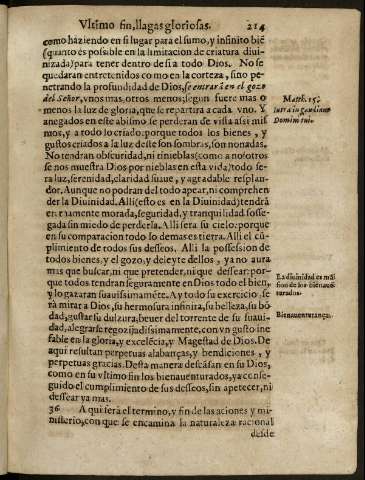 Vltimo fin, llagas gloriosas. 214
como haziendo en si lugar para el sumo, y infinito biē
(quanto es possible en la limitacion de criatura diui-
nizada) para tener dentro de si a todo Dios. No se
quedaran entretenidos como en la corteza, sino pe-
netrando la profundidad de Dios, se entrarà en el gozo
del Señor, vnos mas, otros menos, segun fuere mas o
menos la luz de gloria, que se repartira a cada vno. Y
anegados en este abismo se perderan de vista assi mis-
mos, y a todo lo criado. porque todos los bienes, y
gustos criados a la luz deste son sombras, son nonadas.
No tendran obscuridad, ni tinieblas (como a nosotros
se nos muestra Dios por nieblas en esta vida) todo se-
ra luz, serenidad, claridad suaue, y agradable resplan-
dor. Aunque no podran del todo apear, ni comprehen
der la Diuinidad. Alli (esto es en la Diuinidad) tendrá
eternamente morada, seguridad, y tranquilidad sosse-
gada sin miedo de perderla. Alli sera su cielo: porque
en su comparacion todo lo demas es tierra. Alli el cū-
plimiento de todos sus desseos. Alli la possession de
todos bienes, y el gozo, y deleyte dellos, ya no aura
mas que buscar, ni que pretender, ni que dessear: por-
que todos tendran seguramente en Dios todo el bien,
y lo gazaran suauissimamēte. Ay todo su exercicio se
rà mirar a Dios, su hermosura infinita, su belleza, su bō
dad, gustar su dulzura, beuer del torrente de su suaui-
dad, alegrarse regozijadissimamente, con vn gusto ine
fable en la gloria, y excelēcia, y Magestad de Dios. De
aqui resultan perpetuas alabanças, y bendiciones, y
perpetuas gracias. Desta manera descāsan en su Dios,
como en su vltimo fin los bienauenturados, ya conse-
guido el cumplimiento de sus desseos, sin apetecer, ni
dessear ya mas.
36 Aqui serà el termino, y fin de las aciones y mi-
nisterio, con que se encamina la naturaleza racional
desde
Matth. 25.
Intra in gaudium
Domini tui.
La diuinidad es mā
sion de los bienauē
turados.
Bienauenturança.